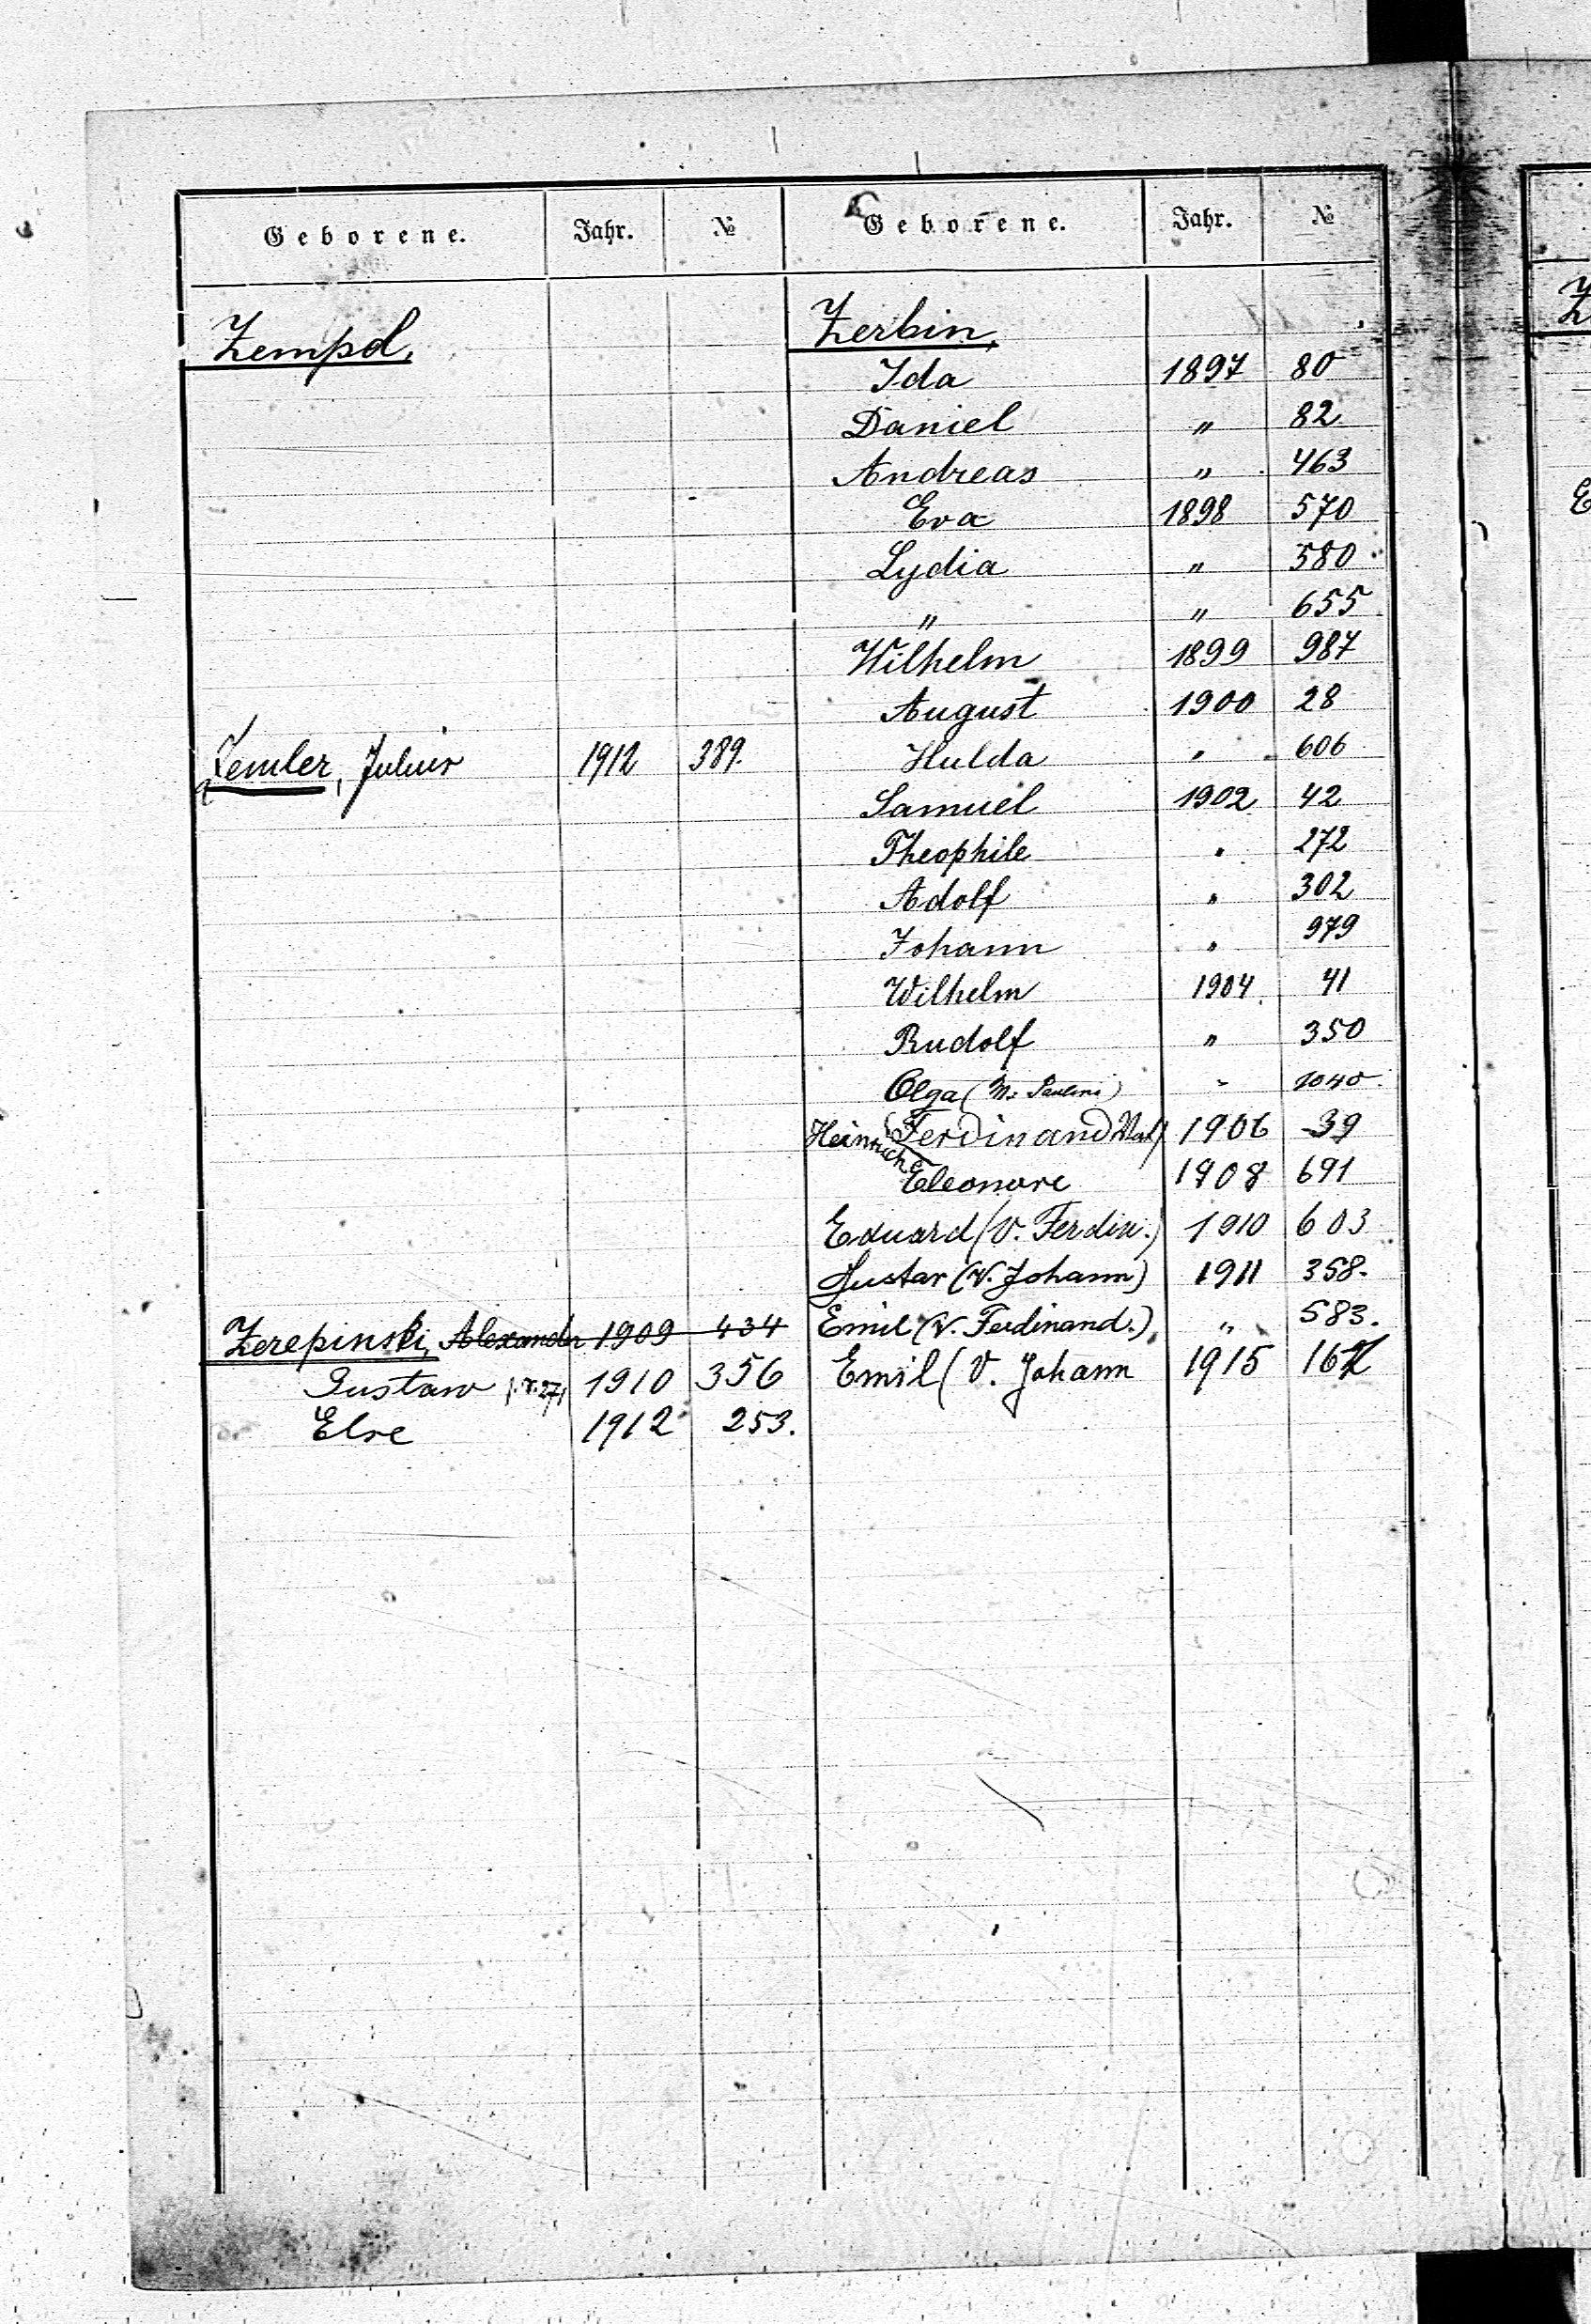 Geborene. Jahr. №
Zempel,
Zemler, Julius 1912 389.
Zerepinski, Alexander 1909 434
Gustaw 1910 356
Else 1912 253.
Geborene. Jahr. №
Zerbin,
Ida 1897 80
Daniel " 82
Andreas " 463
Eva 1898 570
Lydia " 580
" " 655
Wilhelm 1899 987
August 1900 28
Hulda " 606
Samuel 1902 42
Theophile " 272
Adolf " 302
Johann " 979
Wilhelm 1904 41
Rudolf " 350
Olga (M. Paulini) " 1040
Heinrich (Ferdinand Vat) 1906 39
Eleonore 1908 691
Eduard (V. Ferdin.) 1910 603
Gustav (V. Johann) 1911 358.
Emil (V. Ferdinand.) " 583.
Emil (V. Johann 1915 162
Z
E